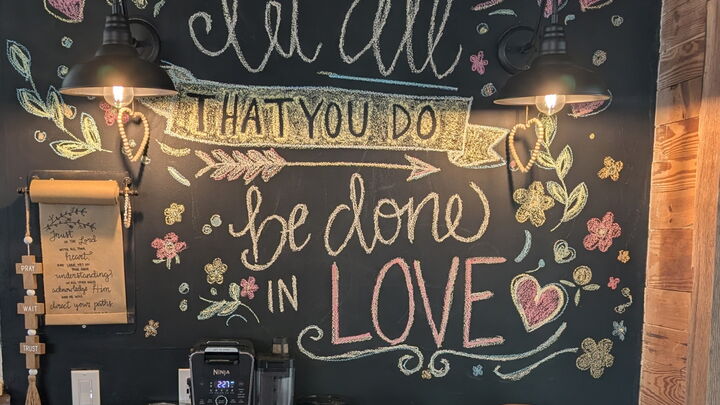 let all
THAT YOU DO
be done
IN LOVE
Trust
IN the Lord
WITH ALL YOUR
heart,
AND LEAN NOT ON
YOUR OWN
understanding;
IN ALL YOUR WAYS
acknowledge Him
AND HE WILL
direct your paths.
PRAY
WAIT
TRUST
NINJA